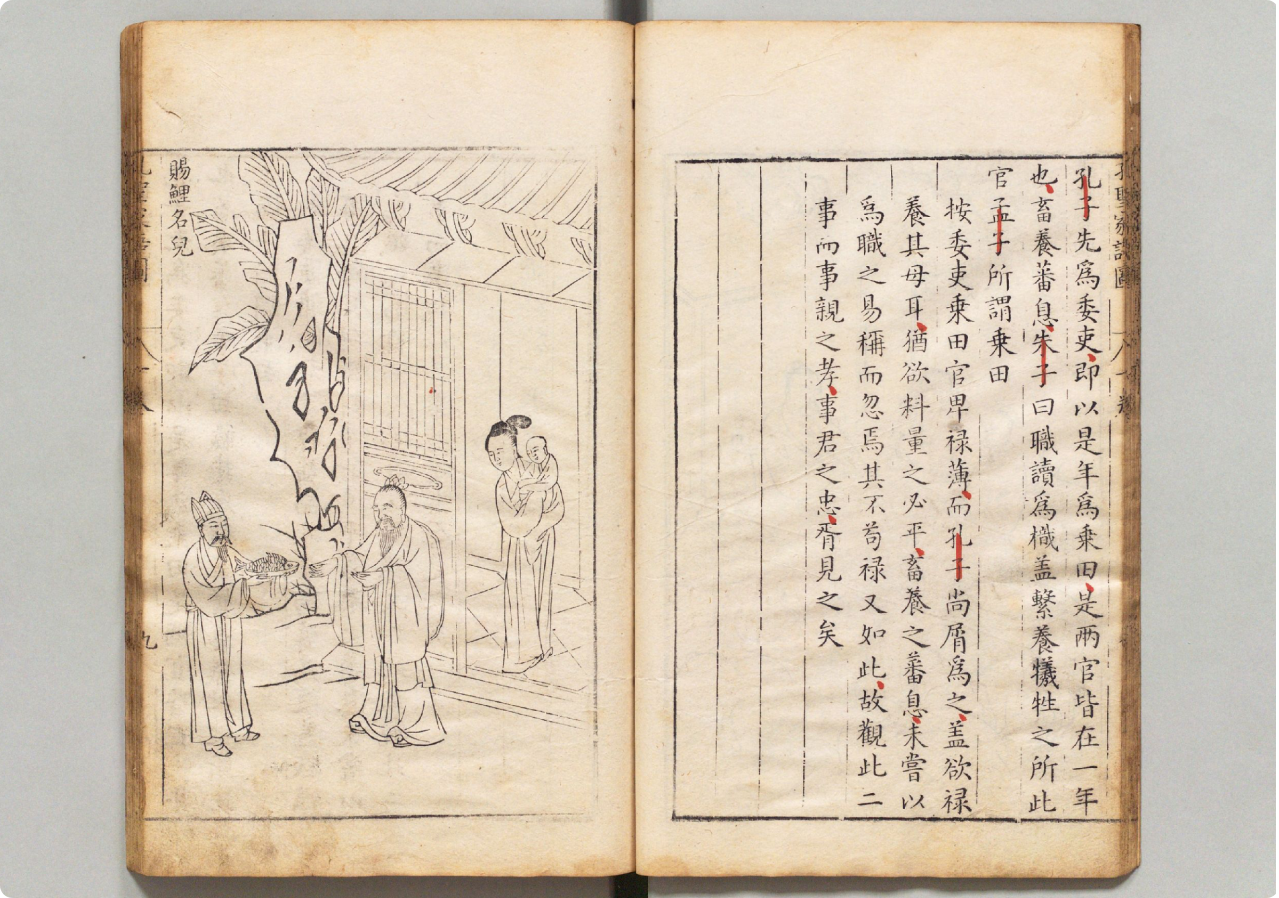 孔聖家譜圖
孔子先爲委吏即以是年爲乗田是兩官皆在一年
也畜養蕃息朱子曰職讀爲樴盖繫養犧牲之所此
官孟子所謂乗田
按委吏乗田官卑禄薄而孔子尚屑爲之盖欲禄
養其母耳猶欲料量之必平畜養之蕃息未嘗以
爲職之易稱而忽焉其不苟禄又如此故觀此二
事而事親之孝事君之忠胥見之矣
賜鯉名兒
九